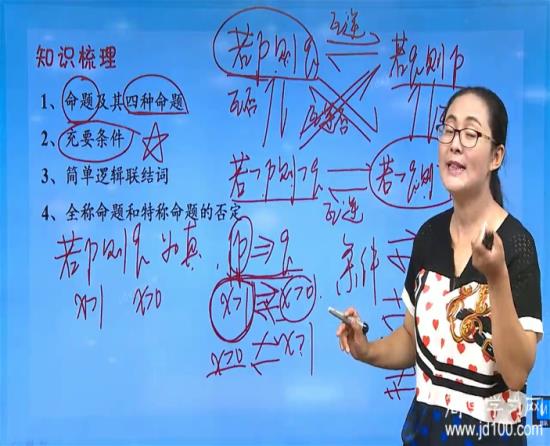 知识梳理
1、命题及其四种命题
2、充要条件
3、简单逻辑联结词
4、全称命题和特称命题的否定
若p则q 互逆 若q则p
互否 互逆否
若¬p则¬q 互逆 若¬q则
若p则q为真 p⇒q 条件
x>1 x>0 x>1 x>0
x>0 x>1
www.jd100.com